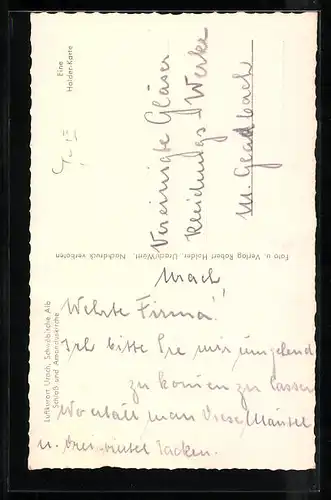 Eine
Halder-Karte
Vereinigte Gläser
Kleidungs Werke
M. Gladbach
Foto u. Verlag Robert Halder, Urach/Württ. Nachdruck verboten
Luftkurort Urach, Schwäbische Alb
Schloß und Amanduskirche
Urach!
Werte Firma!
Ich bitte Sie mir umgehend
zu kommen zu lassen
Woerhält man diese Mäntel
u. drei-viertel Jacken.